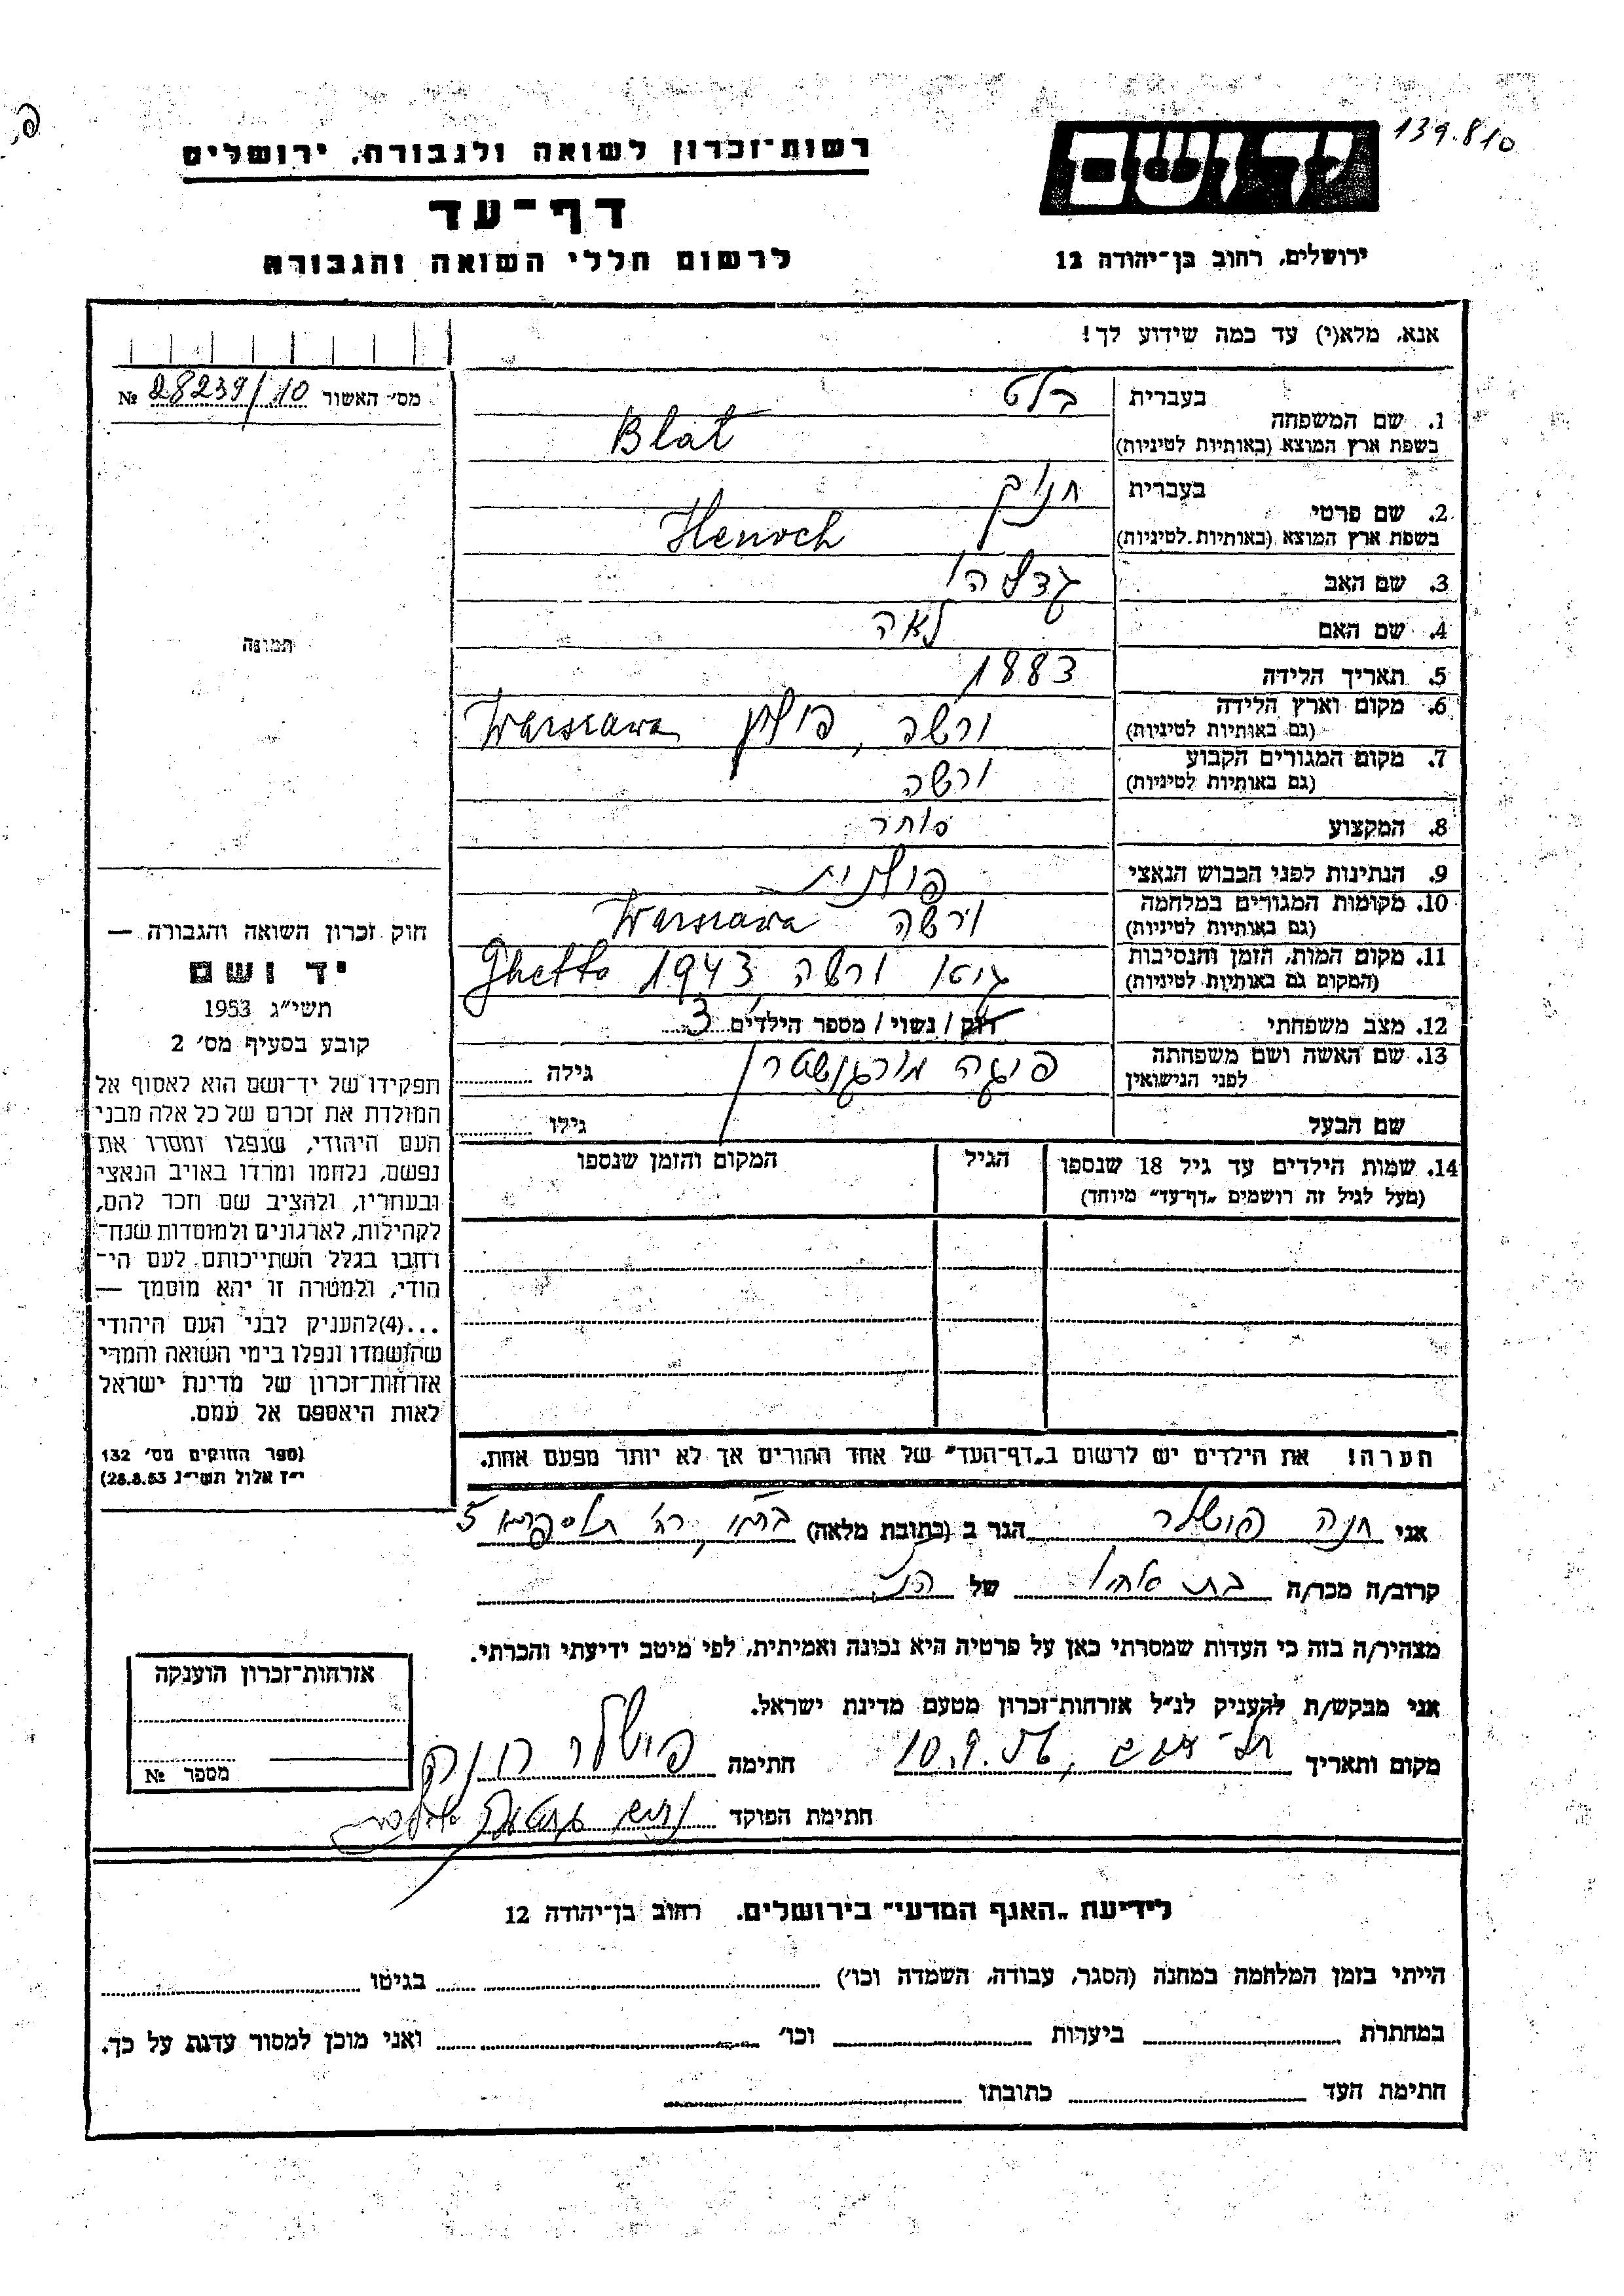 139.810
רשות־זכרון לשואה ולגבורה, ירושלים
דף־עד
לרשום חללי השואה והגבורה
יד ושם
ירושלים, רחוב בן־יהודה 12
אנא, מלא(י) עד כמה שידוע לך!
מס׳ האשור 28239/10 №
1. שם המשפחה בעברית בלט
בשפת ארץ המוצא (באותיות לטיניות) Blat
2. שם פרטי בעברית חנוך
בשפת ארץ המוצא (באותיות לטיניות) Henoch
3. שם האב גדליהו
4. שם האם לאה
5. תאריך הלידה 1883
6. מקום וארץ הלידה (גם באותיות לטיניות) ורשה, פולין Warszawa
7. מקום המגורים הקבוע (גם באותיות לטיניות) ורשה
8. המקצוע סוחר
9. הנתינות לפני הכבוש הנאצי פולנית
10. מקומות המגורים במלחמה (גם באותיות לטיניות) ורשה Warszawa
11. מקום המות, הזמן והנסיבות (המקום גם באותיות לטיניות) גיטו ורשה 1943 Ghetto
12. מצב משפחתי רוק / נשוי / מספר הילדים 3
13. שם האשה ושם משפחתה לפני הנישואין פיגה מורגנשטרן גילה
שם הבעל גילו
14. שמות הילדים עד גיל 18 שנספו הגיל המקום והזמן שנספו
(מעל לגיל זה רושמים „דף־עד״ מיוחד)
הערה! את הילדים יש לרשום ב„דף־העד״ של אחד ההורים אך לא יותר מפעם אחת.
תמונה
חוק זכרון השואה והגבורה —
יד ושם
תשי״ג 1953
קובע בסעיף מס׳ 2
תפקידו של יד־ושם הוא לאסוף אל
המולדת את זכרם של כל אלה מבני
העם היהודי, שנפלו ומסרו את
נפשם, נלחמו ומרדו באויב הנאצי
ובעוזריו, ולהציב שם וזכר להם,
לקהילות, לארגונים ולמוסדות שנח־
רבו בגלל השתייכותם לעם הי־
הודי, ולמטרה זו יהא מוסמך —
...(4)להעניק לבני העם היהודי
שהושמדו ונפלו בימי השואה והמרי
אזרחות־זכרון של מדינת ישראל
לאות היאספם אל עמם.
(ספר החוקים מס׳ 132
י״ז אלול תשי״ג 28.8.53)
אני חנה פוטלר הגר ב (כתובת מלאה) רח׳ 5
קרוב/ה מכר/ה בת אחיו של הנ״ל
מצהיר/ה בזה כי העדות שמסרתי כאן על פרטיה היא נכונה ואמיתית, לפי מיטב ידיעתי והכרתי.
אני מבקש/ת להעניק לנ״ל אזרחות־זכרון מטעם מדינת ישראל.
מקום ותאריך 10.9.56 חתימה פוטלר חנה
חתימת הפוקד
אזרחות־זכרון הוענקה
מספר №
לידיעת „האגף המדעי״ בירושלים, רחוב בן־יהודה 12
הייתי בזמן המלחמה במחנה (הסגר, עבודה, השמדה וכו׳) בגיטו
במחתרת ביערות וכו׳ ואני מוכן למסור עדות על כך.
חתימת העד כתובתו